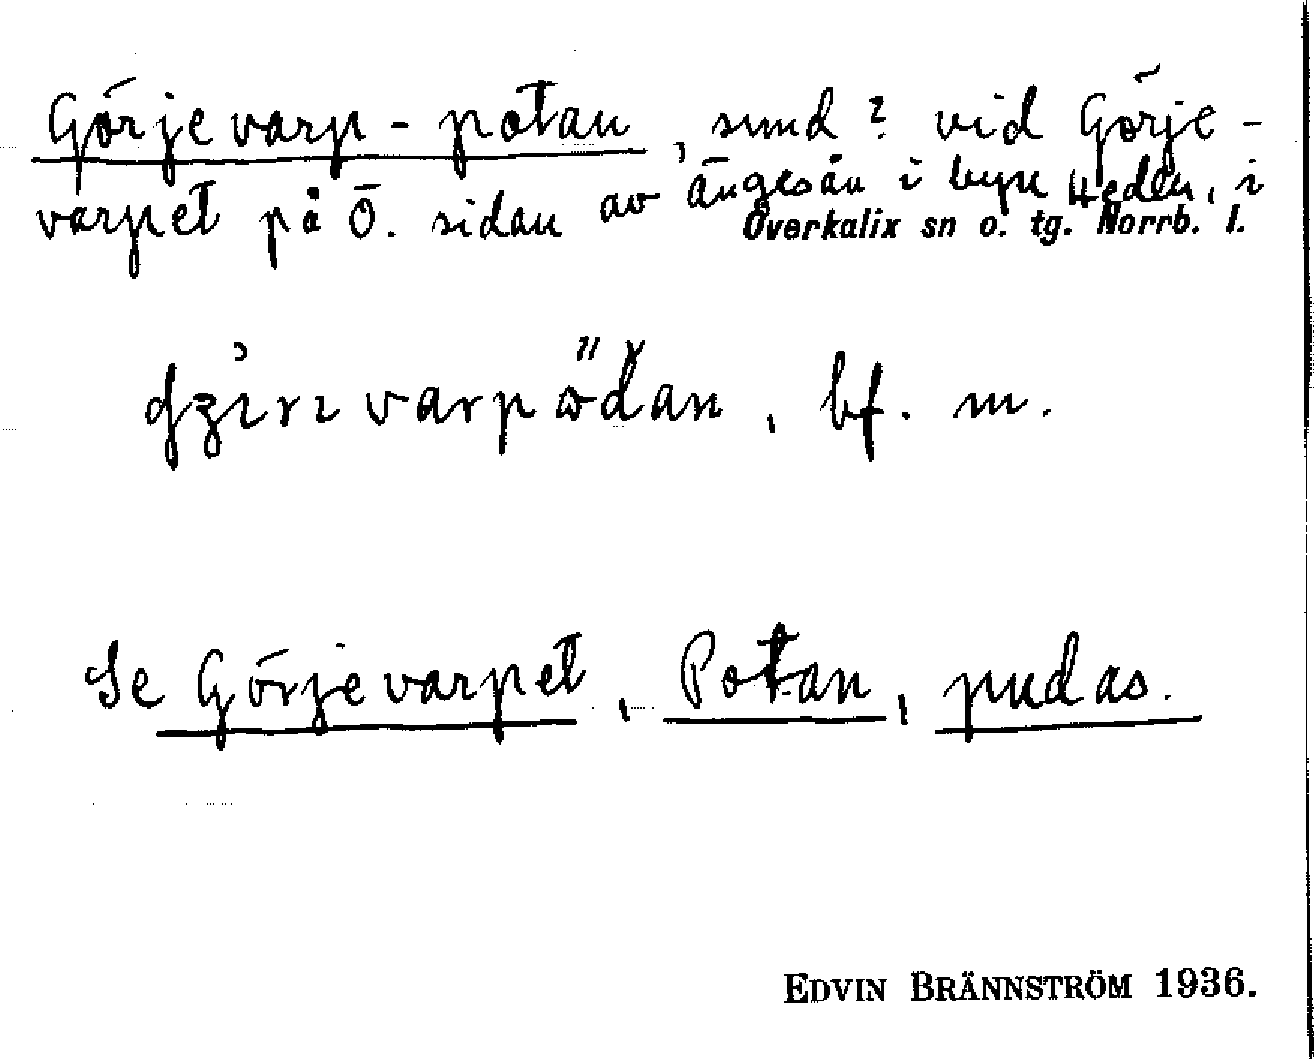 Görjevarp-potan, sund? vid Görje-
varpet på Ö. sidan av Ängesån i byn Heden, i
Överkalix sn o. tg. Norrb. l.
bf. m.
Se Görjevarpet, Potan, pudas.
EDVIN BRÄNNSTRÖM 1936.